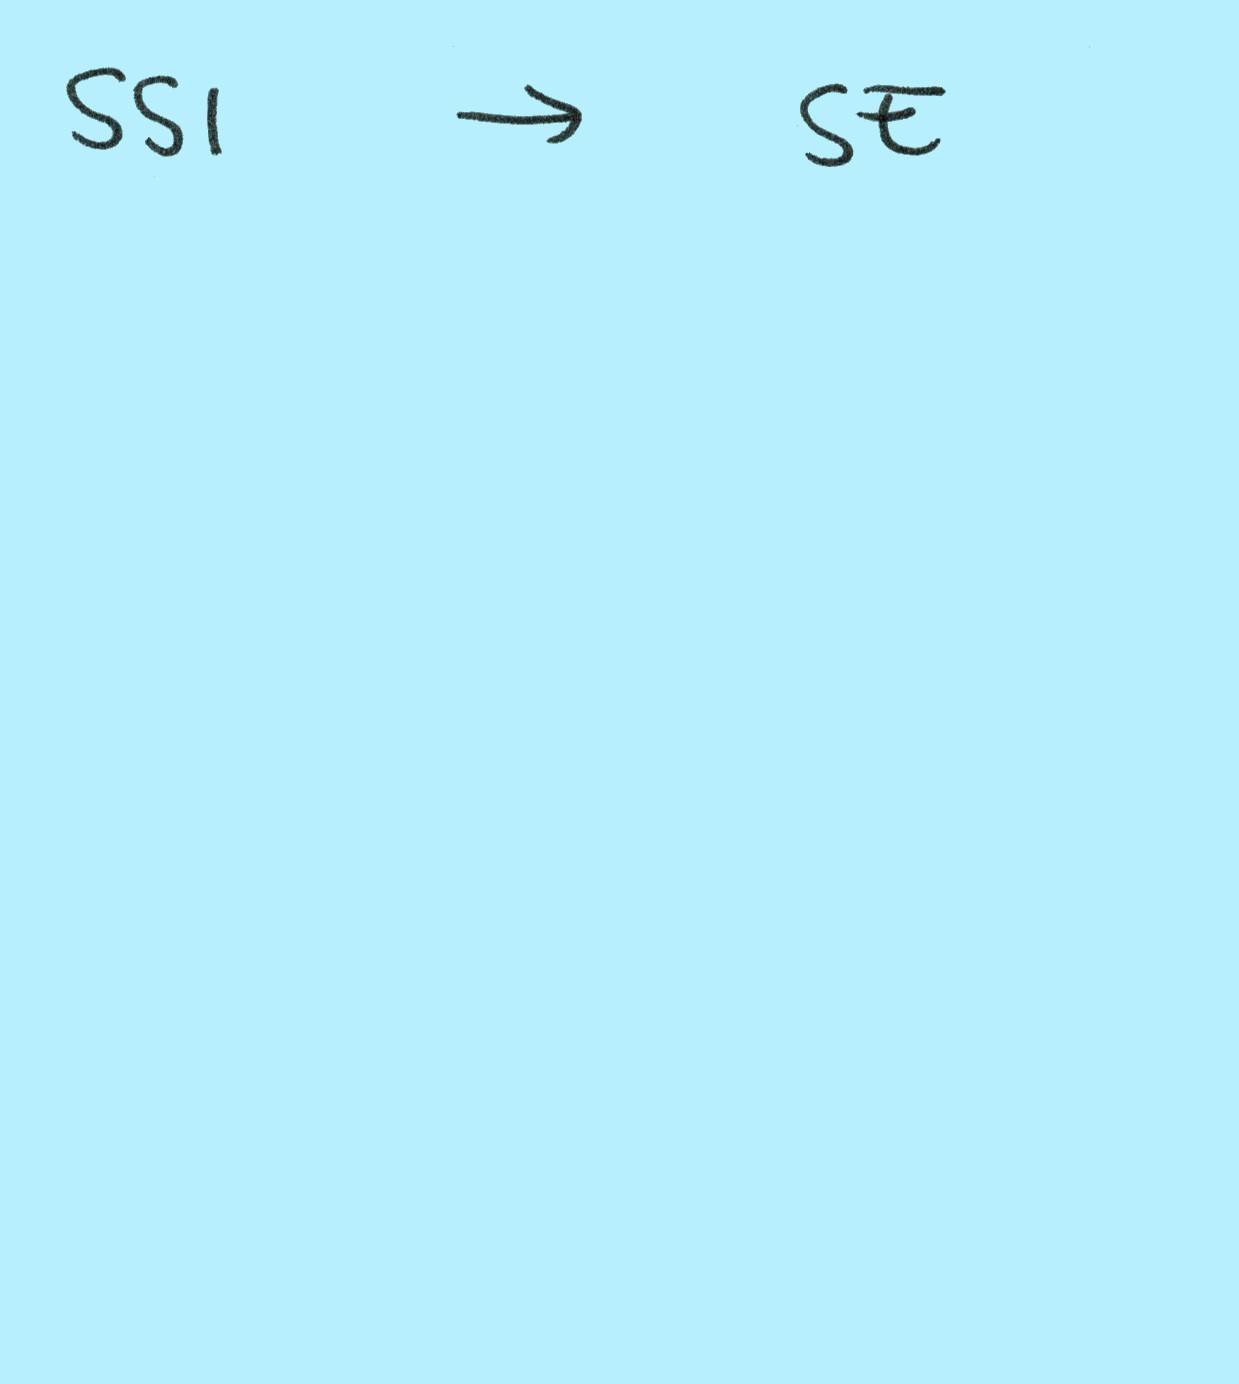 SSI → SE